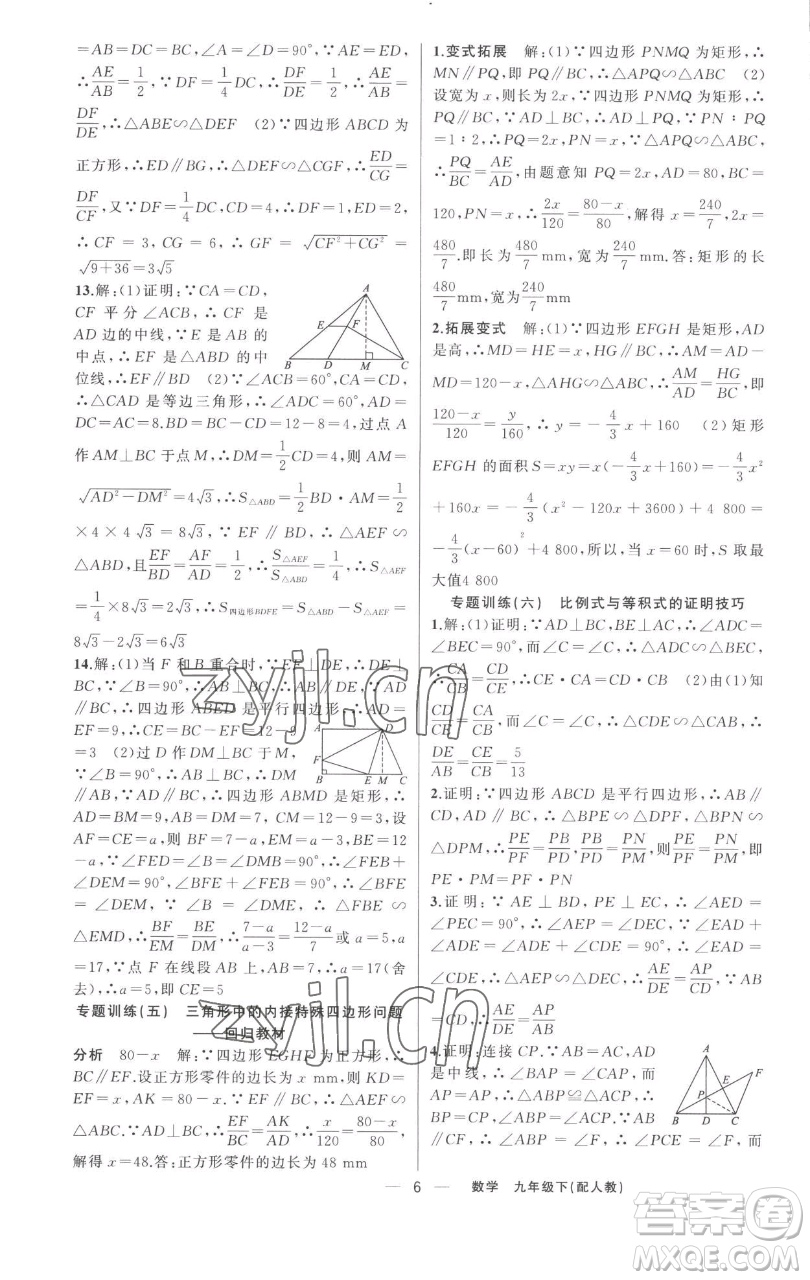 =AB=DC=BC,∠A=∠D=90°,∵AE=ED,
∴AE/AB=1/2,∵DF=1/4DC,∴DF/DE=1/2,∴AE/AB=
DF/DE,∴△ABE∽△DEF (2)∵四边形ABCD为
正方形,∴ED∥BG,∴△DEF∽△CGF,∴ED/CG=
DF/CF,又∵DF=1/4DC,CD=4,∴DF=1,ED=2,
∴CF=3,CG=6,∴GF=√(CF²+CG²)=
√(9+36)=3√5
13.解:(1)证明:∵CA=CD,
CF平分∠ACB,∴CF是
AD边的中线,∵E是AB的
中点,∴EF是△ABD的中
位线,∴EF∥BD (2)∵∠ACB=60°,CA=CD,
∴△CAD是等边三角形,∴∠ADC=60°,AD=
DC=AC=8.BD=BC-CD=12-8=4,过点A
作AM⊥BC于点M,∴DM=1/2CD=4,∴AM=
√(AD²-DM²)=4√3,∴S△ABD=1/2BD·AM=1/2
×4×4√3=8√3,∵EF∥BD,∴△AEF∽
△ABD,且EF/BD=AF/AD=1/2,∴S△AEF/S△ABD=1/4,∴S△AEF=
1/4×8√3=2√3,∴S四边形BDFE=S△ABD-S△AEF=
8√3-2√3=6√3
A
E
F
B D M C
14.解:(1)当F和B重合时,∵EF⊥DE,∴DE⊥
BC,∵∠B=90°,∴AB⊥BC,∴AB∥DE,∵AD
∥BC,∴四边形ABED是平行四边形,∴AD=
EF=9,∴CE=BC-EF=12-9
=3 (2)过D作DM⊥BC于M,
∵∠B=90°,∴AB⊥BC,∴DM
∥AB,∵AD∥BC,∴四边形ABMD是矩形,∴
AD=BM=9,AB=DM=7,CM=12-9=3,设
AF=CE=a,则BF=7-a,EM=a-3,BE=12
-a,∵∠FED=∠B=∠DMB=90°,∴∠FEB+
∠DEM=90°,∠BFE+∠FEB=90°,∴∠BFE=
∠DEM,∵∠B=∠DME,∴△FBE∽
△EMD,∴BF/EM=BE/DM,∴(7-a)/(a-3)=(12-a)/7或a=5,a
=17,∵点F在线段AB上,∴a=17(舍
去),∴a=5,即CE=5
A D
F
B E M C
专题训练(五) 三角形中的内接特殊四边形问题
——回归教材
分析 80-x 解:∵四边形EGHF为正方形,∴
BC∥EF.设正方形零件的边长为x mm,则KD=
EF=x,AK=80-x,∵EF∥BC,∴△AEF∽
△ABC.∵AD⊥BC,∴EF/BC=AK/AD,∴x/120=(80-x)/80,
解得x=48.答:正方形零件的边长为48 mm
1.变式拓展 解:(1)∵四边形PNMQ为矩形,∴
MN∥PQ,即PQ∥BC,∴△APQ∽△ABC (2)
设宽为x,则长为2x,∵四边形PNMQ为矩形,∴
PQ∥BC,∵AD⊥BC,∴AD⊥PQ,∵PN∶PQ
=1∶2,∴PQ=2x,PN=x,∵△APQ∽△ABC,
∴PQ/BC=AE/AD,由题意知PQ=2x,AD=80,BC=
120,PN=x,∴2x/120=(80-x)/80,解得x=240/7,2x=
480/7.即长为480/7 mm,宽为240/7 mm.答:矩形的长
480/7 mm,宽为240/7 mm
2.拓展变式 解:(1)∵四边形EFGH是矩形,AD
是高,∴MD=HE=x,HG∥BC,∴AM=AD-
MD=120-x,△AHG∽△ABC,∴AM/AD=HG/BC,即
(120-x)/120=y/160,∴y=-4/3x+160 (2)矩形
EFGH的面积S=xy=x(-4/3x+160)=-4/3x²
+160x=-4/3(x²-120x+3600)+4 800=
-4/3(x-60)²+4 800,所以,当x=60时,S取最
大值4 800
专题训练(六) 比例式与等积式的证明技巧
1.解:(1)证明:∵AD⊥BC,BE⊥AC,∴∠ADC=
∠BEC=90°,而∠C=∠C,∴△ADC∽△BEC,
∴CA/CB=CD/CE,∴CE·CA=CD·CB (2)由(1)知
CD/CE=CA/CB,而∠C=∠C,∴△CDE∽△CAB,∴
DE/AB=CE/CB=5/13
2.证明:∵四边形ABCD是平行四边形,∴AB∥
CD,AD∥BC,∴△BPE∽△DPF,△BPN∽
△DPM,∴PE/PF=PB/PD,PB/PD=PN/PM,则PE/PF=PN/PM,即
PE·PM=PN·PF
3.证明:∵AE⊥BD,PE⊥EC,∴∠AED=
∠PEC=90°,∴∠AEP=∠DEC,∵∠EAD+
∠ADE=∠ADE+∠CDE=90°,∴∠EAD=
∠CDE,∴△AEP∽△DEC,∴AE/DE=AP/CD,∵AB=
CD,∴AE/DE=AP/AB
4.证明:连接CP.∵AB=AC,AD
是中线,∴∠BAP=∠CAP,而
AP=AP,∴△ABP≌△ACP,∴
BP=CP,∠ABP=∠ACP.∵AB
∥CF,∴∠ABP=∠F,∴∠ACP=∠F,而
A
F
E
P
B D C
— 6 — 数学 九年级下(配人教)
zyjl.cn
zyjl.cn
答案圈
MXQE.COM